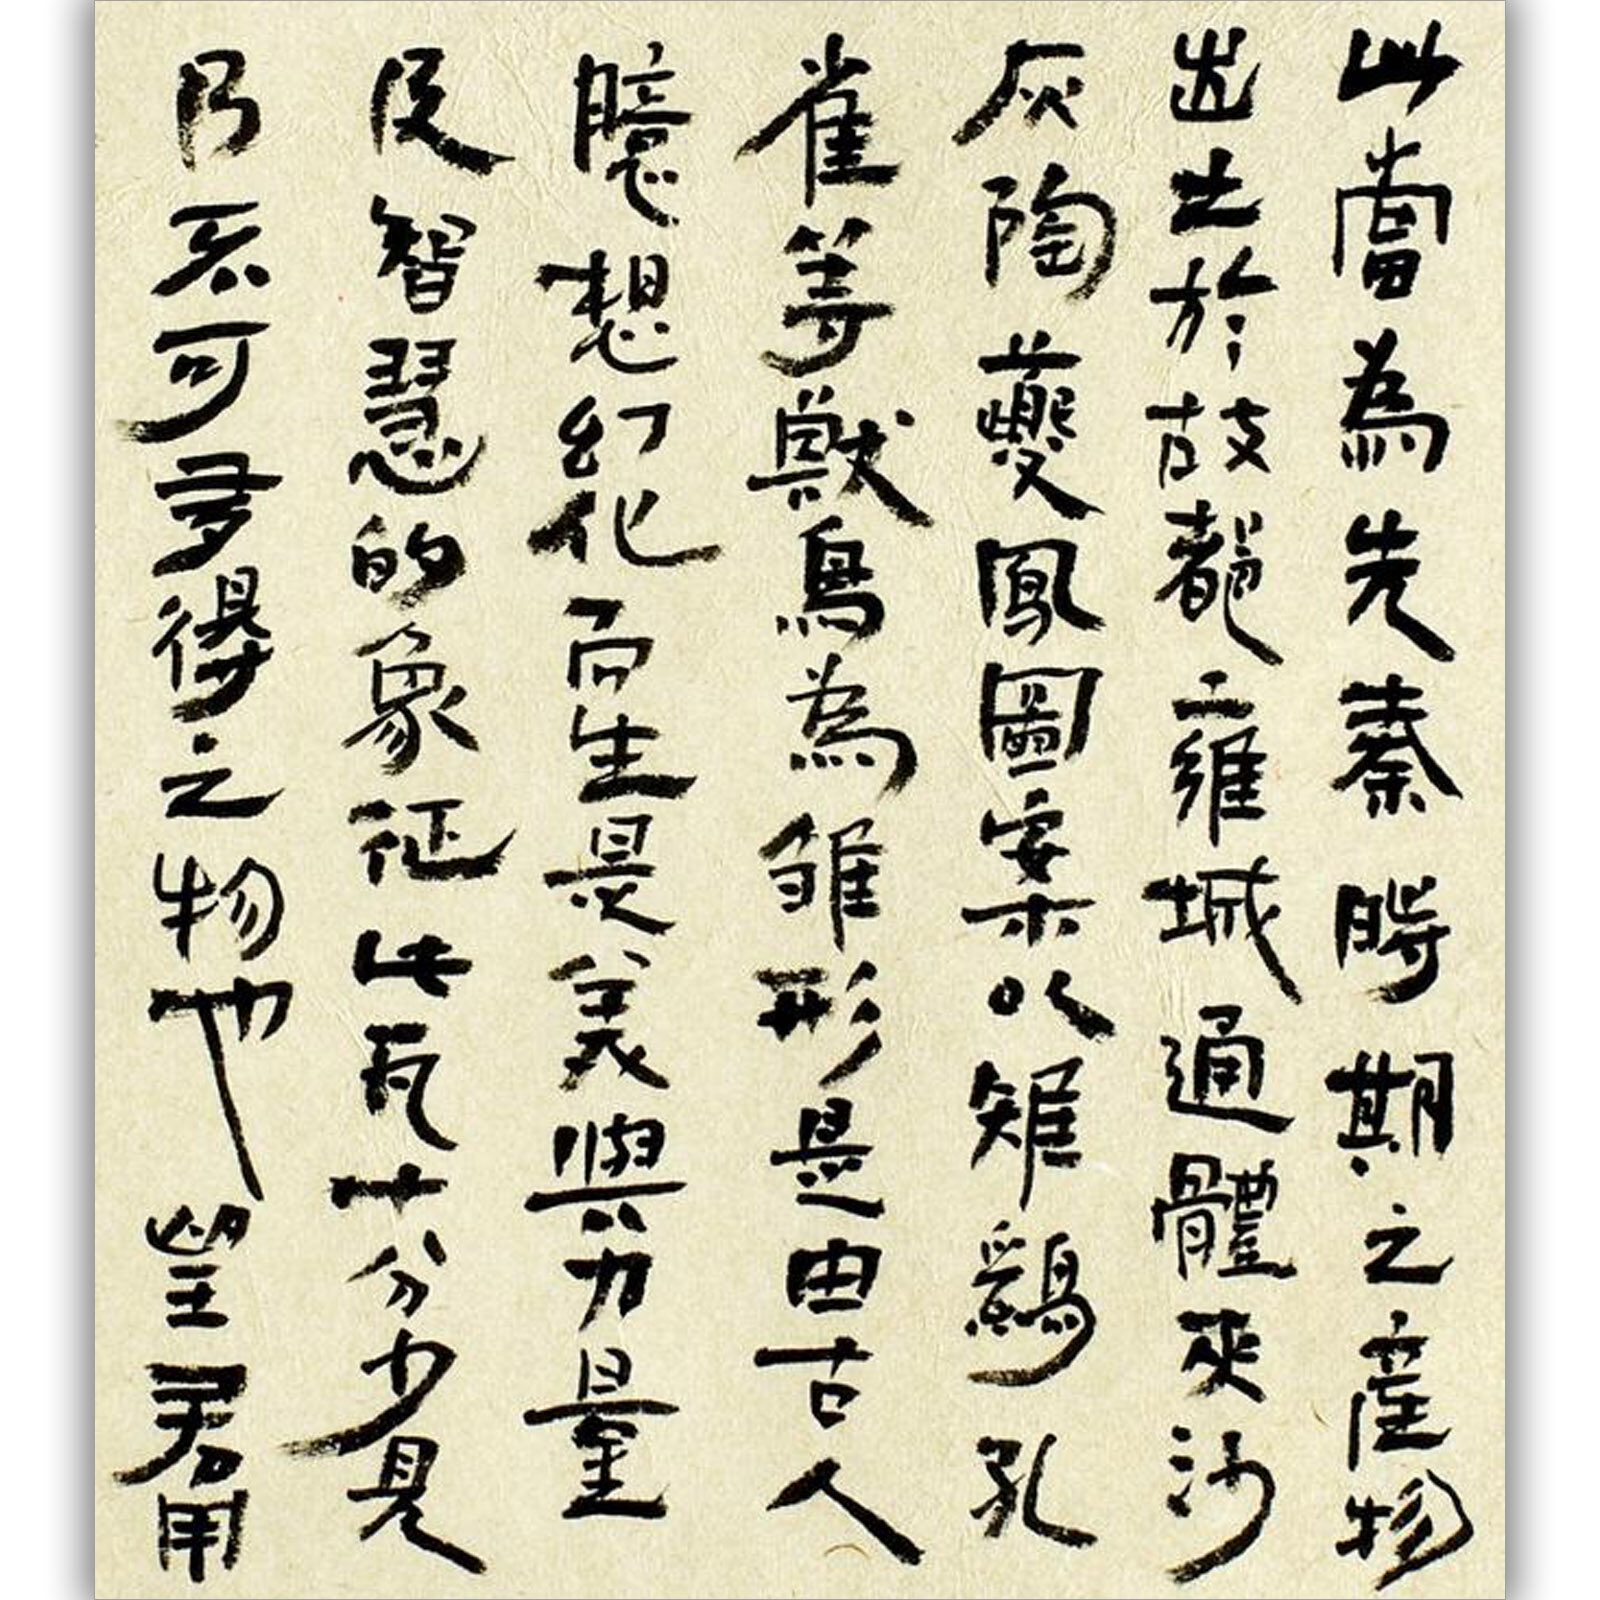 此當為先秦時期之產物
出土於故都之雍城通體夾沙
灰陶夔鳳圖案以雉鷄孔
雀等獸鳥為雏形是由古人
臆想幻化而生是美與力量
及智慧的象征此瓦十分少見
乃不可多得之物也望君用